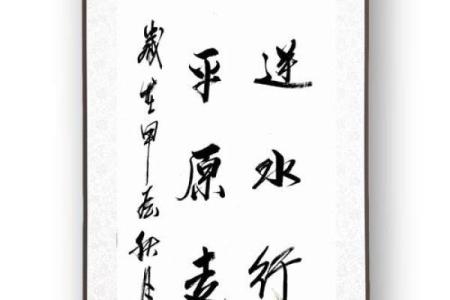 逆水行
平原走
歲在甲辰秋月